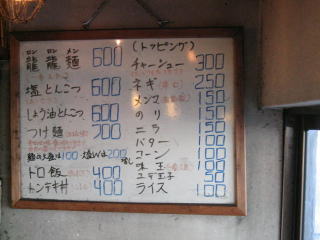 ロン ロン メン
龍 龍 麺 600
塩とんこつ 600
しょう油とんこつ 600
つけ麺 700
トロ飯 400
トンテキ丼 400
(トッピング)
チャーシュー 300
ネギ 250
メンマ 150
のり 150
ニラ 150
バター 100
コーン 100
味玉 100
ユデ玉子 50
ライス 100